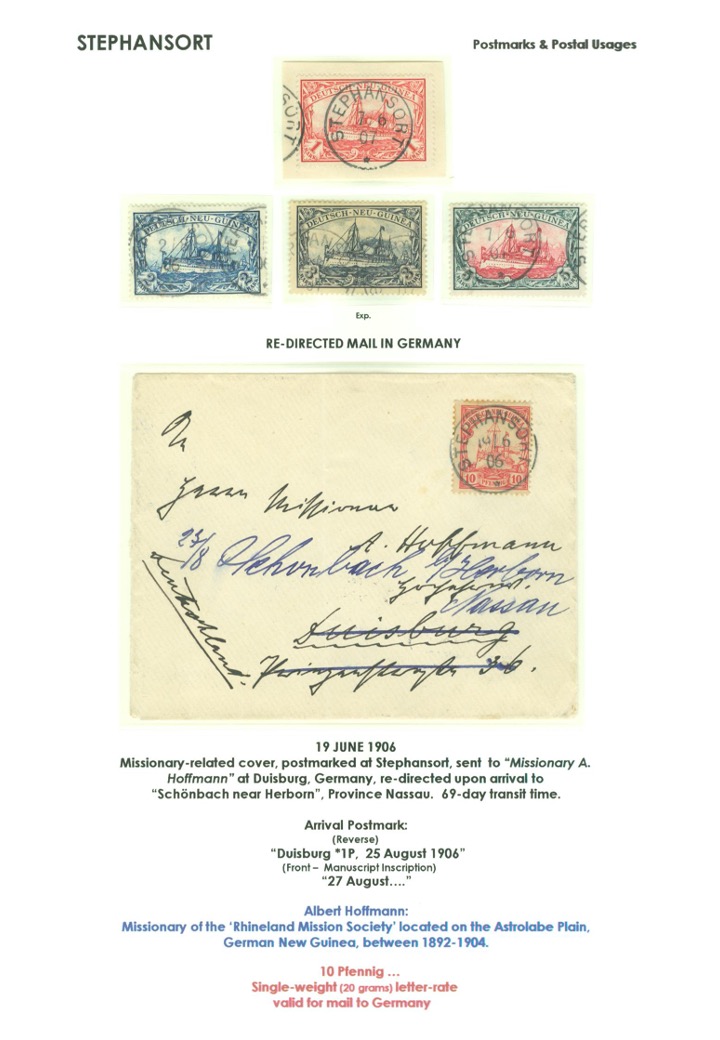 STEPHANSORT
Postmarks & Postal Usages
STEPHANSORT
7 6
07
DEUTSCH-NEU-GUINEA
1 1
DEUTSCH-NEU-GUINEA
2 2
DEUTSCH-NEU-GUINEA
3 3
DEUTSCH-NEU-GUINEA
5 5
Exp.
RE-DIRECTED MAIL IN GERMANY
STEPHANSORT
19 6
06
10 PFENNIG 10
An
Herrn Missionar
A. Hoffmann
Schönbach b/Herborn
Nassau
Deutschland.
Duisburg
36.
19 JUNE 1906
Missionary-related cover, postmarked at Stephansort, sent to “Missionary A.
Hoffmann” at Duisburg, Germany, re-directed upon arrival to
“Schönbach near Herborn”, Province Nassau. 69-day transit time.
Arrival Postmark:
(Reverse)
“Duisburg *1P, 25 August 1906”
(Front – Manuscript Inscription)
“27 August....”
Albert Hoffmann:
Missionary of the ‘Rhineland Mission Society’ located on the Astrolabe Plain,
German New Guinea, between 1892-1904.
10 Pfennig ...
Single-weight (20 grams) letter-rate
valid for mail to Germany